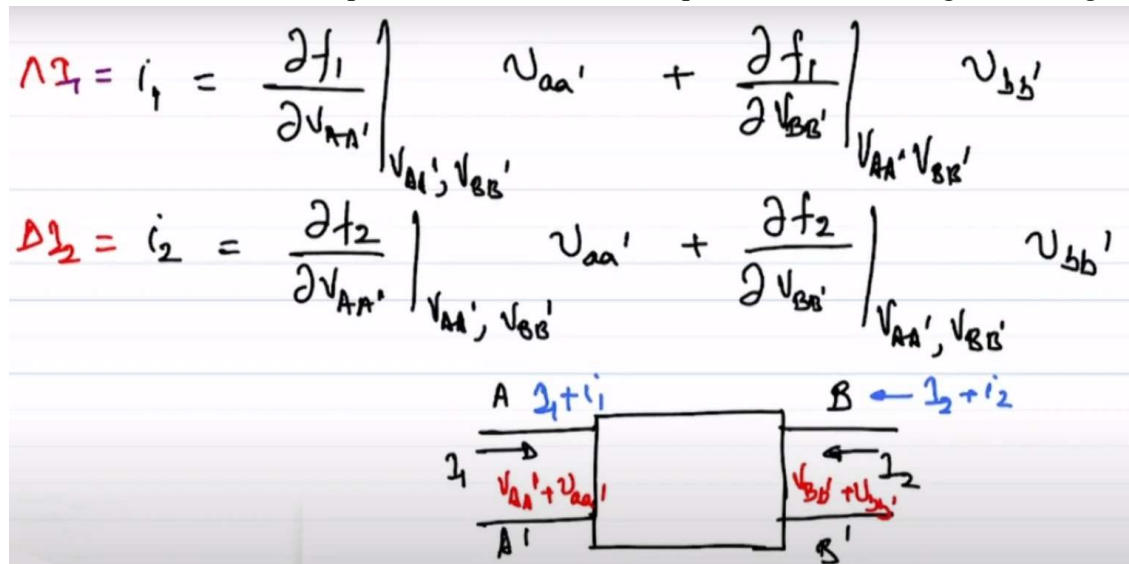 ΔI₁ = i₁ = ∂f₁/∂V_AA' |_V_AA', V_BB' v_aa' + ∂f₁/∂V_BB' |_V_AA' V_BB' v_bb'
ΔI₂ = i₂ = ∂f₂/∂V_AA' |_V_AA', V_BB' v_aa' + ∂f₂/∂V_BB' |_V_AA', V_BB' v_bb'
A I₁+i₁ B ← I₂+i₂
I₁ → ← I₂
V_AA'+v_aa' V_BB'+v_bb'
A' B'